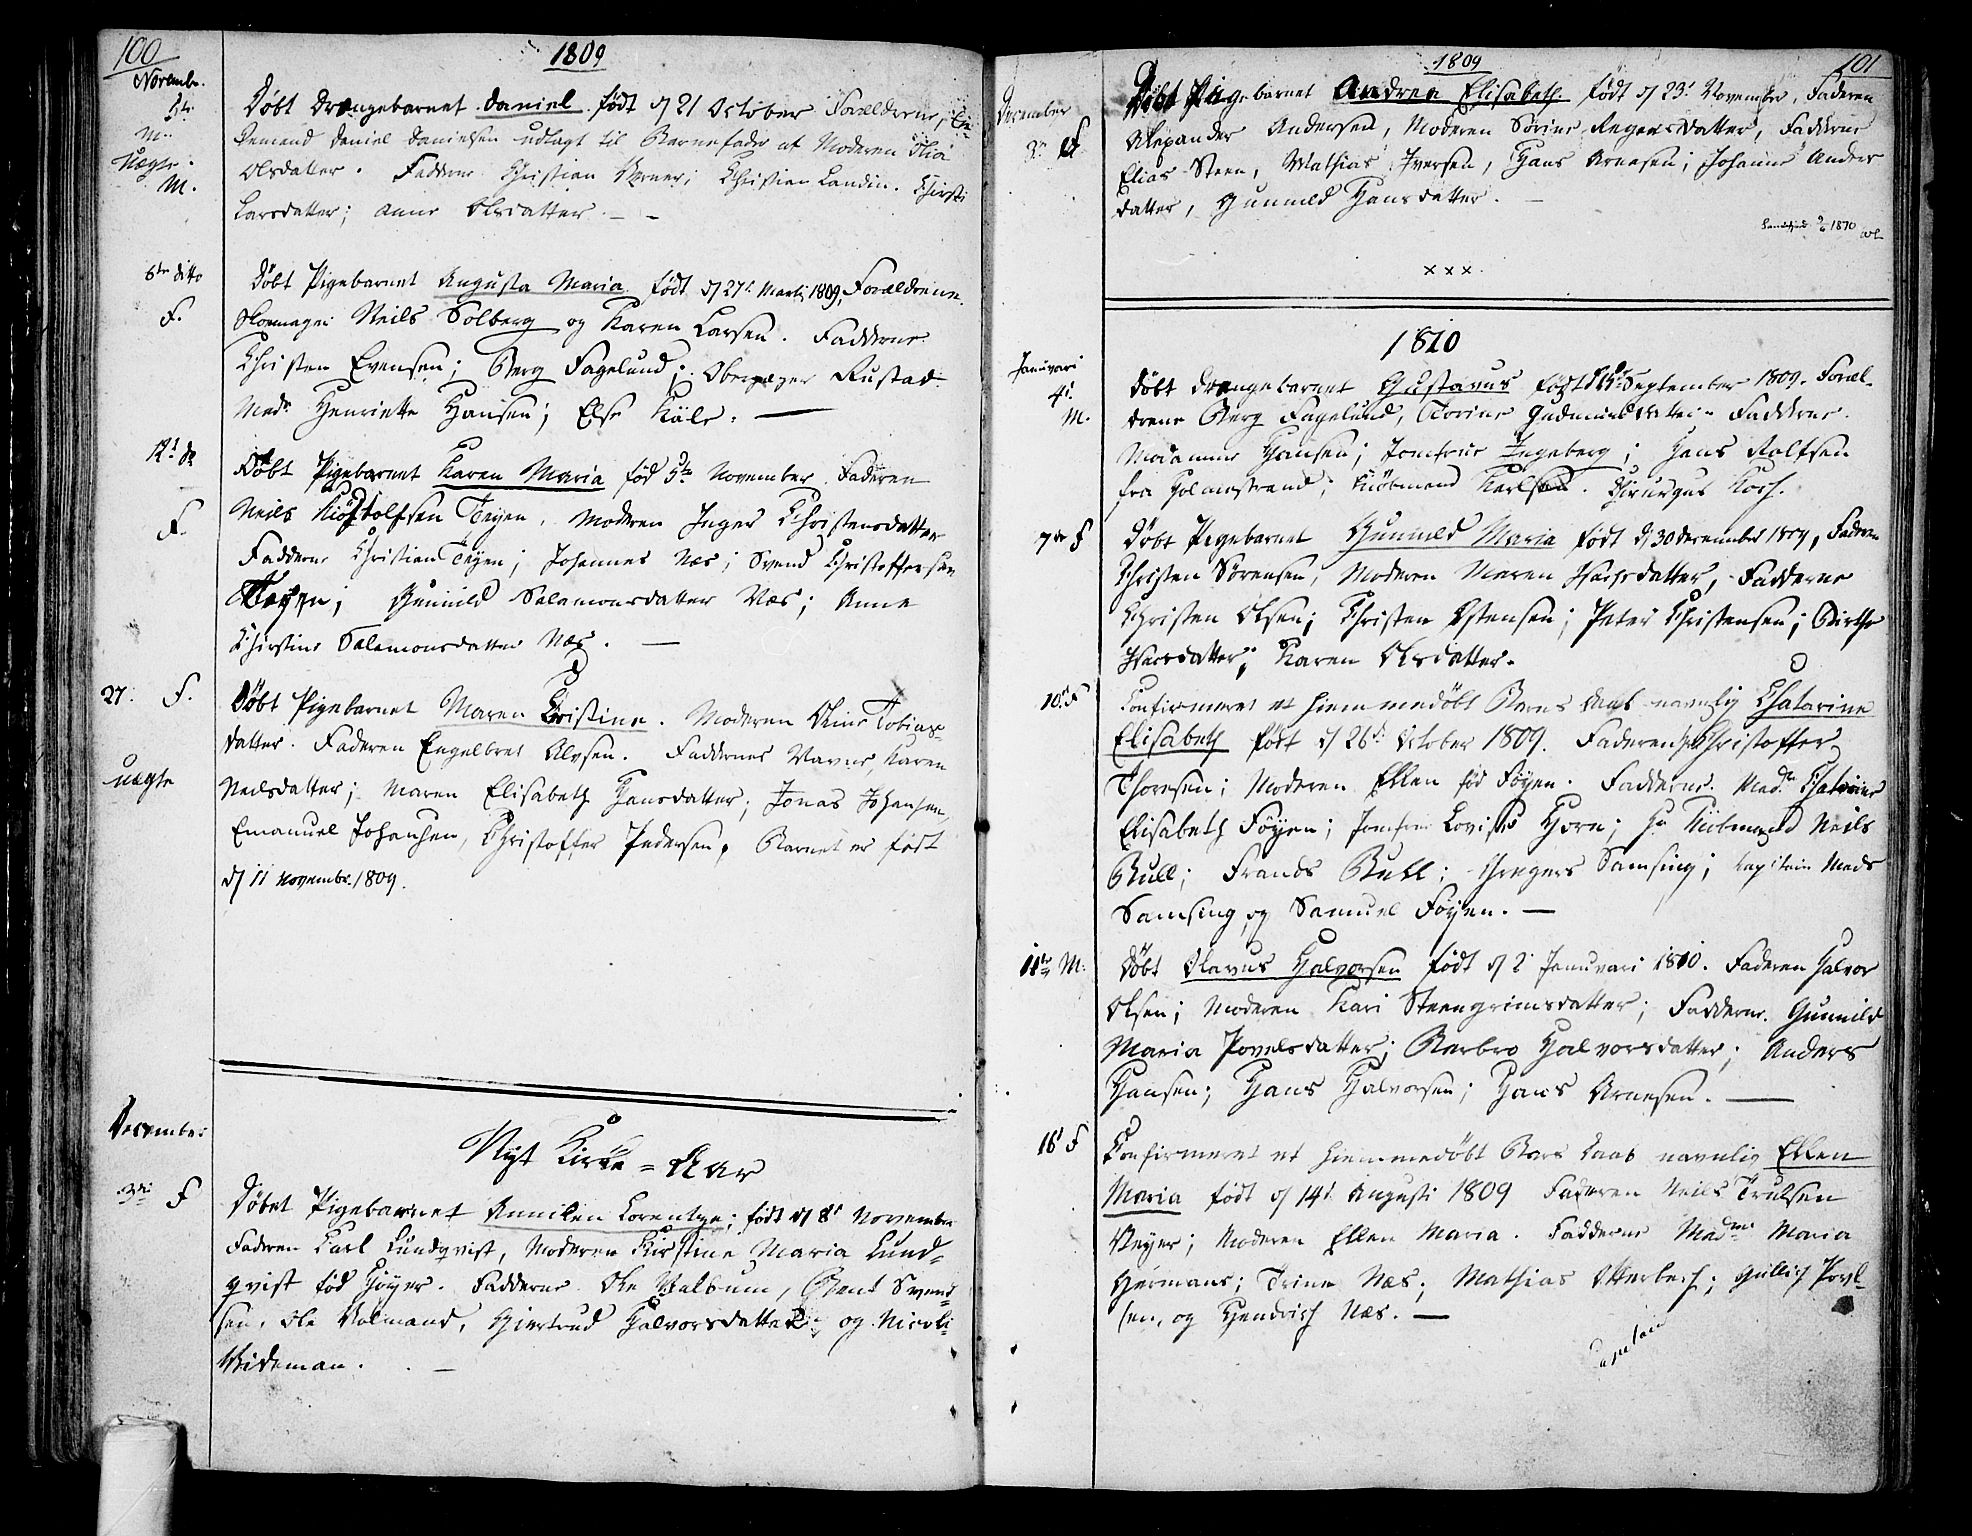 100
1809
Novembr.
5te
M.
Uægte
M.
Døbt Drængebarnet Daniel født d 21 October Forældrene,
Daniel Danielsen udlagt til Barnefader af Moderen
Olsdatter. Faddere Christian Werner; Christian Landin.
Larsdatter; Anne Olsdatter. —
6te ditto
F.
Døbt Pigebarnet Augusta Maria født d 27t Martj 1809, Forældrene.
Skomager Neils Solberg og Karen Larsen. Fadderne
Christen Evensen; Berg Fagelund; Oberjæger Rustad
Mad. Henriette Hansen; Else. —
12t do
F.
Døbt Pigebarnet Karen Maria fød 5te November Faderen
Neils Kiøstolfsen Teyen, Moderen Inger Christensdatter
Fadderne Christian Teyen; Johannes Næs; Svend Christoffersen
Teyen; Gunnild Salamonsdatter Næs; Anne
Chirstine Salamonsdatter Næs. —
27. F.
uægte
Døbt Pigebarnet Maren Cristine. Moderen Tobias-
datter. Faderen Engelbret Alvsen. Faddernes Navne, Karen
Neilsdatter; Maren Elisabeth Hansdatter; Jonas Johansen,
Emanuel Johansen, Christoffer Pedersen, Barnet er født
d 11 Novembr. 1809.
December
Nyt Kirke=Aar
3die F
Døbet Pigebarnet Lorentze; født d 8t Novembr
Faderen Carl Lundqvist, Moderen Kirstine Maria Lund-
qvist fød Høyer. Fadderne Ole, Bent Svend-
sen, Ole Volmand, Giertrud Halvorsdatter og Nicoli
Wideman. —
1809
101
December
3die F
Døbt Pigebarnet Andrea Elisabeth født d 23t November, Faderen
Alexander Andersen, Moderen Sørine, Fadderne
Elias Steen, Mathias Iversen, Hans Arnesen; Johanne Anders
datter, Gunnild Hansdatter. —
1870
x x x.
1810
Januari
4t.
M.
Døbt Drængebarnet Gustavus født September 1809. Foræl-
drene Berg Fagelund, Torine Fadderne.
Madamme Hansen; Jomfrue Ingeberg; Hans Rolfsen
fra Holmestrand; Kiøbmand Karlsen. Chirurgus Koch.
7de F
Døbt Pigebarnet Gunnild Maria født d 30 December 1809, Faderen
Christen Sørensen, Moderen Maren Isachsdatter, Fadderne
Christen Olsen; Christen Ostensen; Peter Christensen; Birthe
Karen Olsdatter.
10t F
Confirmeret et hiemmedøbt Barns Daab navnlig Chatarine
Elisabeth født d 26de October 1809. Faderen Christoffer
Thoresen; Moderen Ellen fød Føyen. Fadderne. Madm Chatarine
Elisabeth Føyen; Jomfrue Lovise Horn; Hr Kiøbmand Neils
Bull; Frands Bull; Gregers Samsing; Capitain Mads
Samsing, og Samuel Føyen. —
11te M.
Døbt Olavus Halvorsen født d 2 Januari 1810. Faderen Halvor
Olsen; Moderen Kari Steengrimsdatter; Fadderne. Gunnild
Maria Povelsdatter; Barbro Halvorsdatter; Anders
Hansen; Hans Halvorsen; Hans Arnesen. —
18t F
Confirmeret et hiemmedøbt Bars Daab navnlig Ellen
Maria født d 14t Augusti 1809 Faderen Neils Trulsen
Moderen Ellen Maria. Fadderne Madme Maria
Hermans; Trine Næs; Mathias Otterbech; Gullich Povl-
sen, og Hendrich Næs. —